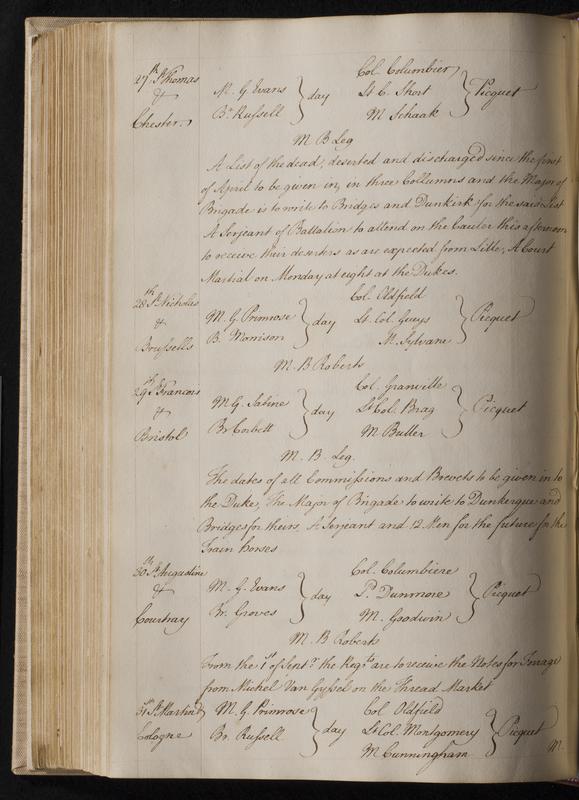 27th St Thomas M. G. Evans } day Col. Columbier } Picquet
& Br Russell Lt C. Short
Chester M Schaak
M B Leg
A List of the dead, deserted and discharged since the first
of April to be given in, in three Collumns and the Major of
Brigade is to write to Bridges and Dunkirk for the said List
A Serjeant of Battalion to attend on the Cauter this afternoon
to receive their deserters as are expected from Lille, A Court
Martial on Monday at eight at the Dukes.
28th St Nicholas M. G Primrose } day Col. Oldfield } Picquet
& B. Morrison Lt. Col. Guys
Brussells M. Sylvane
M. B Roberts
29th St Francois M G. Sabine } day Col. Granville } Picquet
& Br Corbett Lt Col. Brag
Bristol M Butler
M. B. Leg.
The dates of all Commissions and Brevets to be given in to
the Duke, The Major of Brigade to write to Dunkerque and
Bridges for theirs, A Serjeant and 12 Men for the future for the
Train horses
30th St Augustine M. G. Evans } day Col. Columbiere } Picquet
& Br. Groves P. Dunmore
Courtray M. Goodwin
M. B Roberts
From the 1st of Septr. the Regts. are to receive the Notes for Forage
from Michel Van Gyssel on the Thread Market
31st St Martin M. G. Primrose } day Col Oldfield } Picquet
Cologne Br. Russell Lt Col. Montgomery
M Cunningham M.